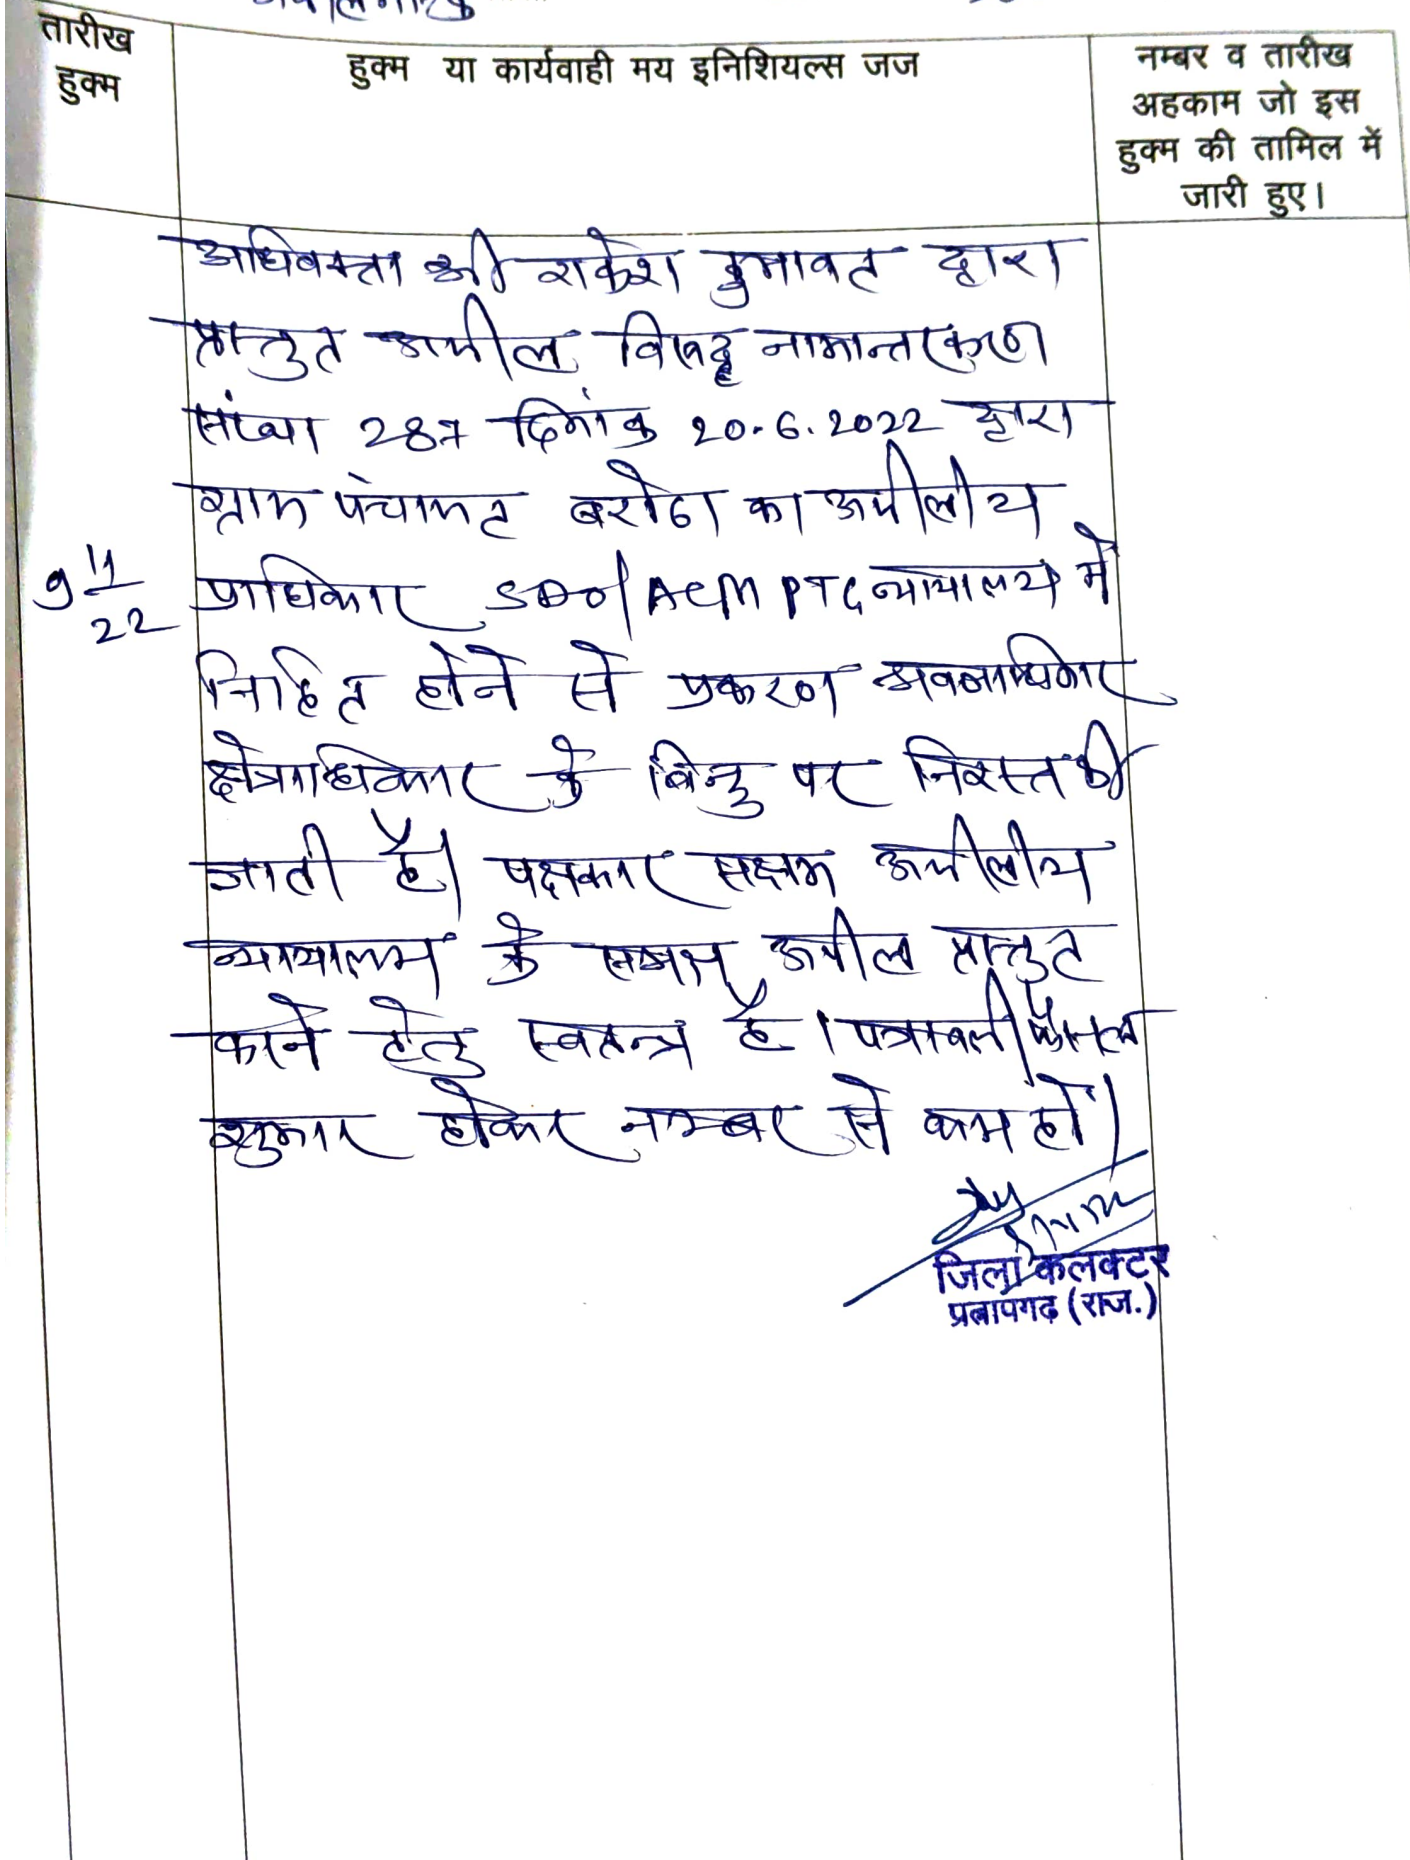 तारीख
हुक्म
हुक्म या कार्यवाही मय इनिशियल्स जज
नम्बर व तारीख
अहकाम जो इस
हुक्म की तामिल में
जारी हुए।
अधिवक्ता श्री राकेश कुमावत द्वारा
प्रस्तुत अपील विरूद्ध नामान्तरकरण
संख्या 287 दिनांक 20.6.2022 द्वारा
ग्राम पंचायत बरोठा का अपीलीय
9 11/22
प्राधिकार SDO/ACM PTG न्यायालय में
निहित होने से प्रकरण श्रवणाधिकार
क्षेत्राधिकार के बिन्दु पर निरस्त की
जाती है। पक्षकार सक्षम अपीलीय
न्यायालय के समक्ष अपील प्रस्तुत
करने हेतु स्वतन्त्र है। पत्रावली फैसल
शुमार होकर नम्बर से कम हो।
जिला कलक्टर
प्रतापगढ़ (राज.)